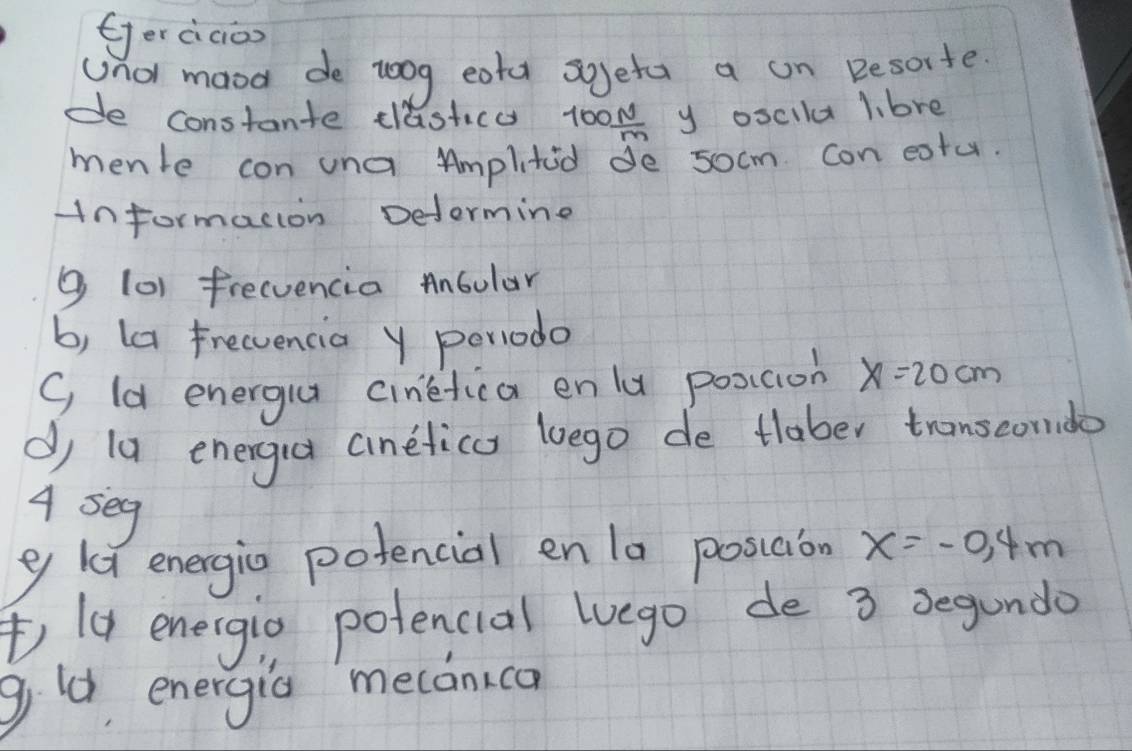 Ejercicios
Una masa de 200g esta sujeta a un Resorte.
de constante elástica 100 N/m y oscila libre
mente con una Amplitud de 50cm con esta.
Información Determine
a, la frecuencia Angular
b, la frecuencia y periodo
c, la energia cinética en la posición x=20cm
d, la energia cinética luego de Haber transcorrido
4 seg
e, la energia potencial en la posición x=-0,4m
f, la energia potencial luego de 3 segundo
g, la energía mecánica